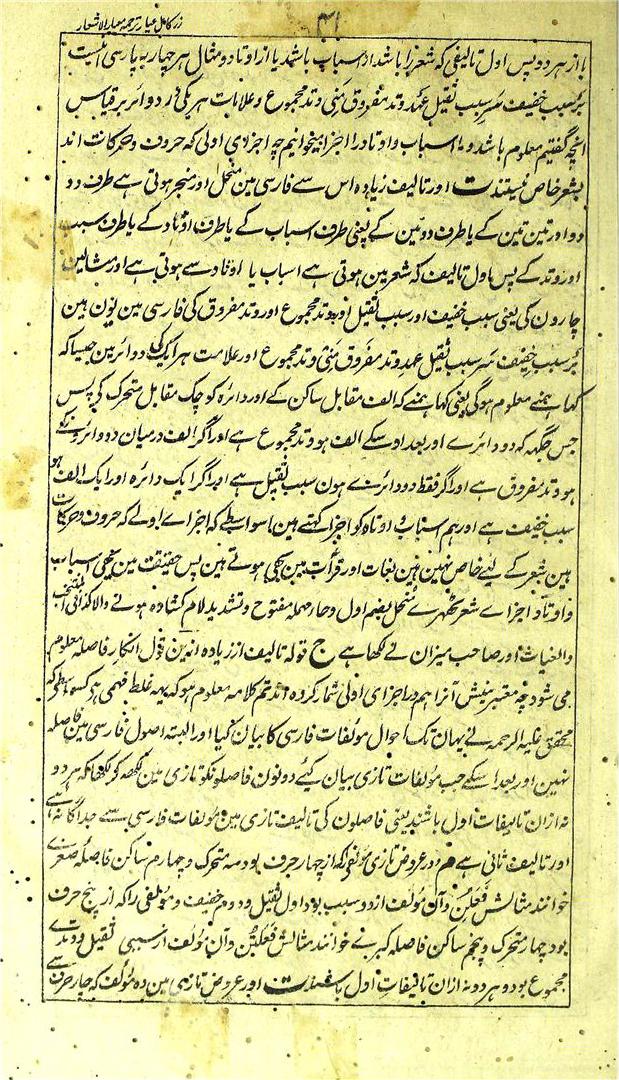 زر کامل عیار ترجمہ معیار الاشعار
۳۱
یا از هر دو پس اول تالیفی که شعر را باشد از اسباب باشد یا از اوتاد و مثال هر چهار به پارسی اینست
بر سبب خفیف سر سبب ثقیل عمد وتد مفروق منی وتد مجموع و علامات هر یکی در دوائر بر قیاس
انچه گفتیم معلوم باشد و ما اسباب و اوتاد را اجزا میخوانیم چه اجزای اولی که حروف و حرکات اند
بشعر خاص نیستند ت اور تالیف زیادہ اس سے فارسی مین منحل اور منجر ہوتی ہے طرف دو
دو اور تین تین کے یا طرف دو مین کے یعنی طرف اسباب کے یا طرف اوتاد کے یا طرف سبب
اور وتد کے پس اول تالیف کہ شعر مین ہوتی ہے اسباب یا اوتاد سے ہوتی ہے اور مثالین
چارون کی یعنی سبب خفیف اور سبب ثقیل اور وتد مجموع اور وتد مفروق کی فارسی مین یون ہین
بر سبب خفیف سر سبب ثقیل عمد وتد مفروق منی وتد مجموع اور علامت ہر ایک کی دوائر مین جیسا کہ
کہا ہمنے معلوم ہوگی یعنی کہا ہمنے کہ الف مقابل ساکن کے اور دائرہ کوچک مقابل متحرک کی پس
جس جگہہ کہ دو دائرے اور بعد اوسکے الف ہو وتد مجموع ہے اور اگر الف درمیان دو دائرونکے
ہو وتد مفروق ہے اور اگر فقط دو دائرے ہون سبب ثقیل ہے اور اگر ایک دائرہ اور ایک الف ہو
سبب خفیف ہے اور ہم اسباب و اوتاد کو اجزا کہتے ہین اسواسطے کہ اجزاے اولے کہ حروف و حرکات
ہین شعر کے لیئے خاص نہین ہین لغات اور قرأت مین بھی ہوتے ہین پس حقیقت مین یہی اسباب
و اوتاد اجزاے شعر ٹھہرے منحل بضم اول و حاء مہملہ مفتوح و تشدید لام کشادہ ہونے والا کذا فی المنتخب
والغیاث اور صاحب میزان نے لکھا ہے ج قوله تالیف از زیاده از ین قول انکار فاصله معلوم
می شود چه معتبر نیش آنرا هم در اجزای اولی شمار کرده اند تم کلامه معلوم ہو کہ یہہ غلط فہمی ہے کسواسطے کہ
محقق علیہ الرحمہ نے یہان تک احوال مولفات فارسی کا بیان کیا اور البتہ اصول فارسی مین فاصلہ
نہین اور بعد اسکے جب مولفات تازی بیان کیئے دونون فاصلونکو تازی مین لکھہ کر لکھا کہ هر دو
نه ازان تالیفات اول باشند یعنی فاصلون کی تالیف تازی مین مولفات فارسی سے جداگانہ ہے
اور تالیف ثانی ہے م و در عروض تازی مؤلفی که از چهار حرف بود سه متحرک و چهارم ساکن فاصلهٔ صغرے
خوانند مثالش فَعِلُنْ و آن مؤلف از دو سبب بود اول ثقیل و دوم خفیف و مؤلفی را که از پنج حرف
بود چهار متحرک و پنجم ساکن فاصله کبرے خوانند مثالش فَعَلَتُنْ و آن مؤلف از سببی ثقیل و وتدے
مجموع بود و هر دو نه ازان تالیفات اول باشند ت اور عروض تازی مین وہ مؤلف کہ چار حرف سے